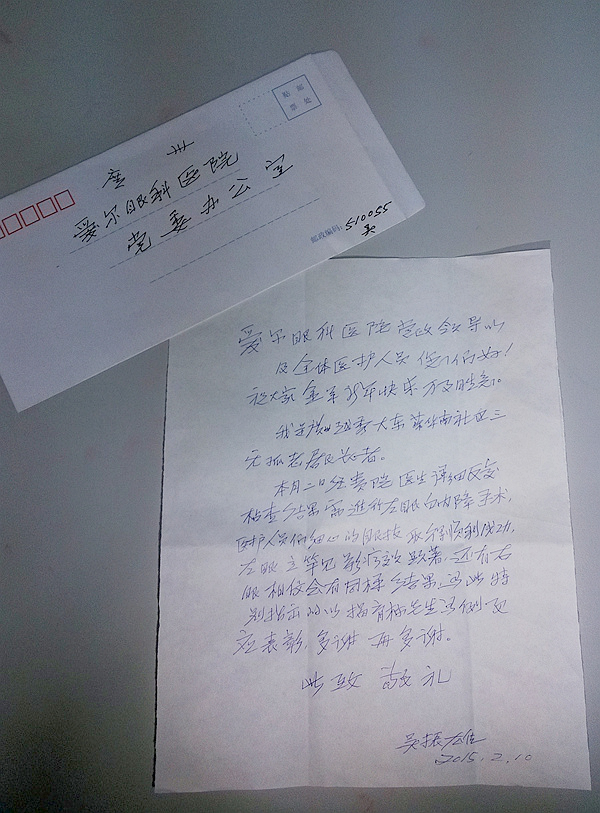 贴 邮
票 处
广州
爱尔眼科医院
党委办公室
邮政编码：510055
爱尔眼科医院党政领导以
及全体医护人员 您们好！
祝大家 羊年快乐 万事胜意。
我是 越秀 大东 社区三
无孤老居民长者。
本月二日经贵院医生详细反复
检查结果需进行左眼白内障手术，
医护人员们细心的 顺利成功，
左眼立竿见影疗效显著，还有右
眼相信会有同样结果，为此特
别 先生为例
应表彰，多谢 再多谢。
此致 敬礼
吴振
2015.2.10